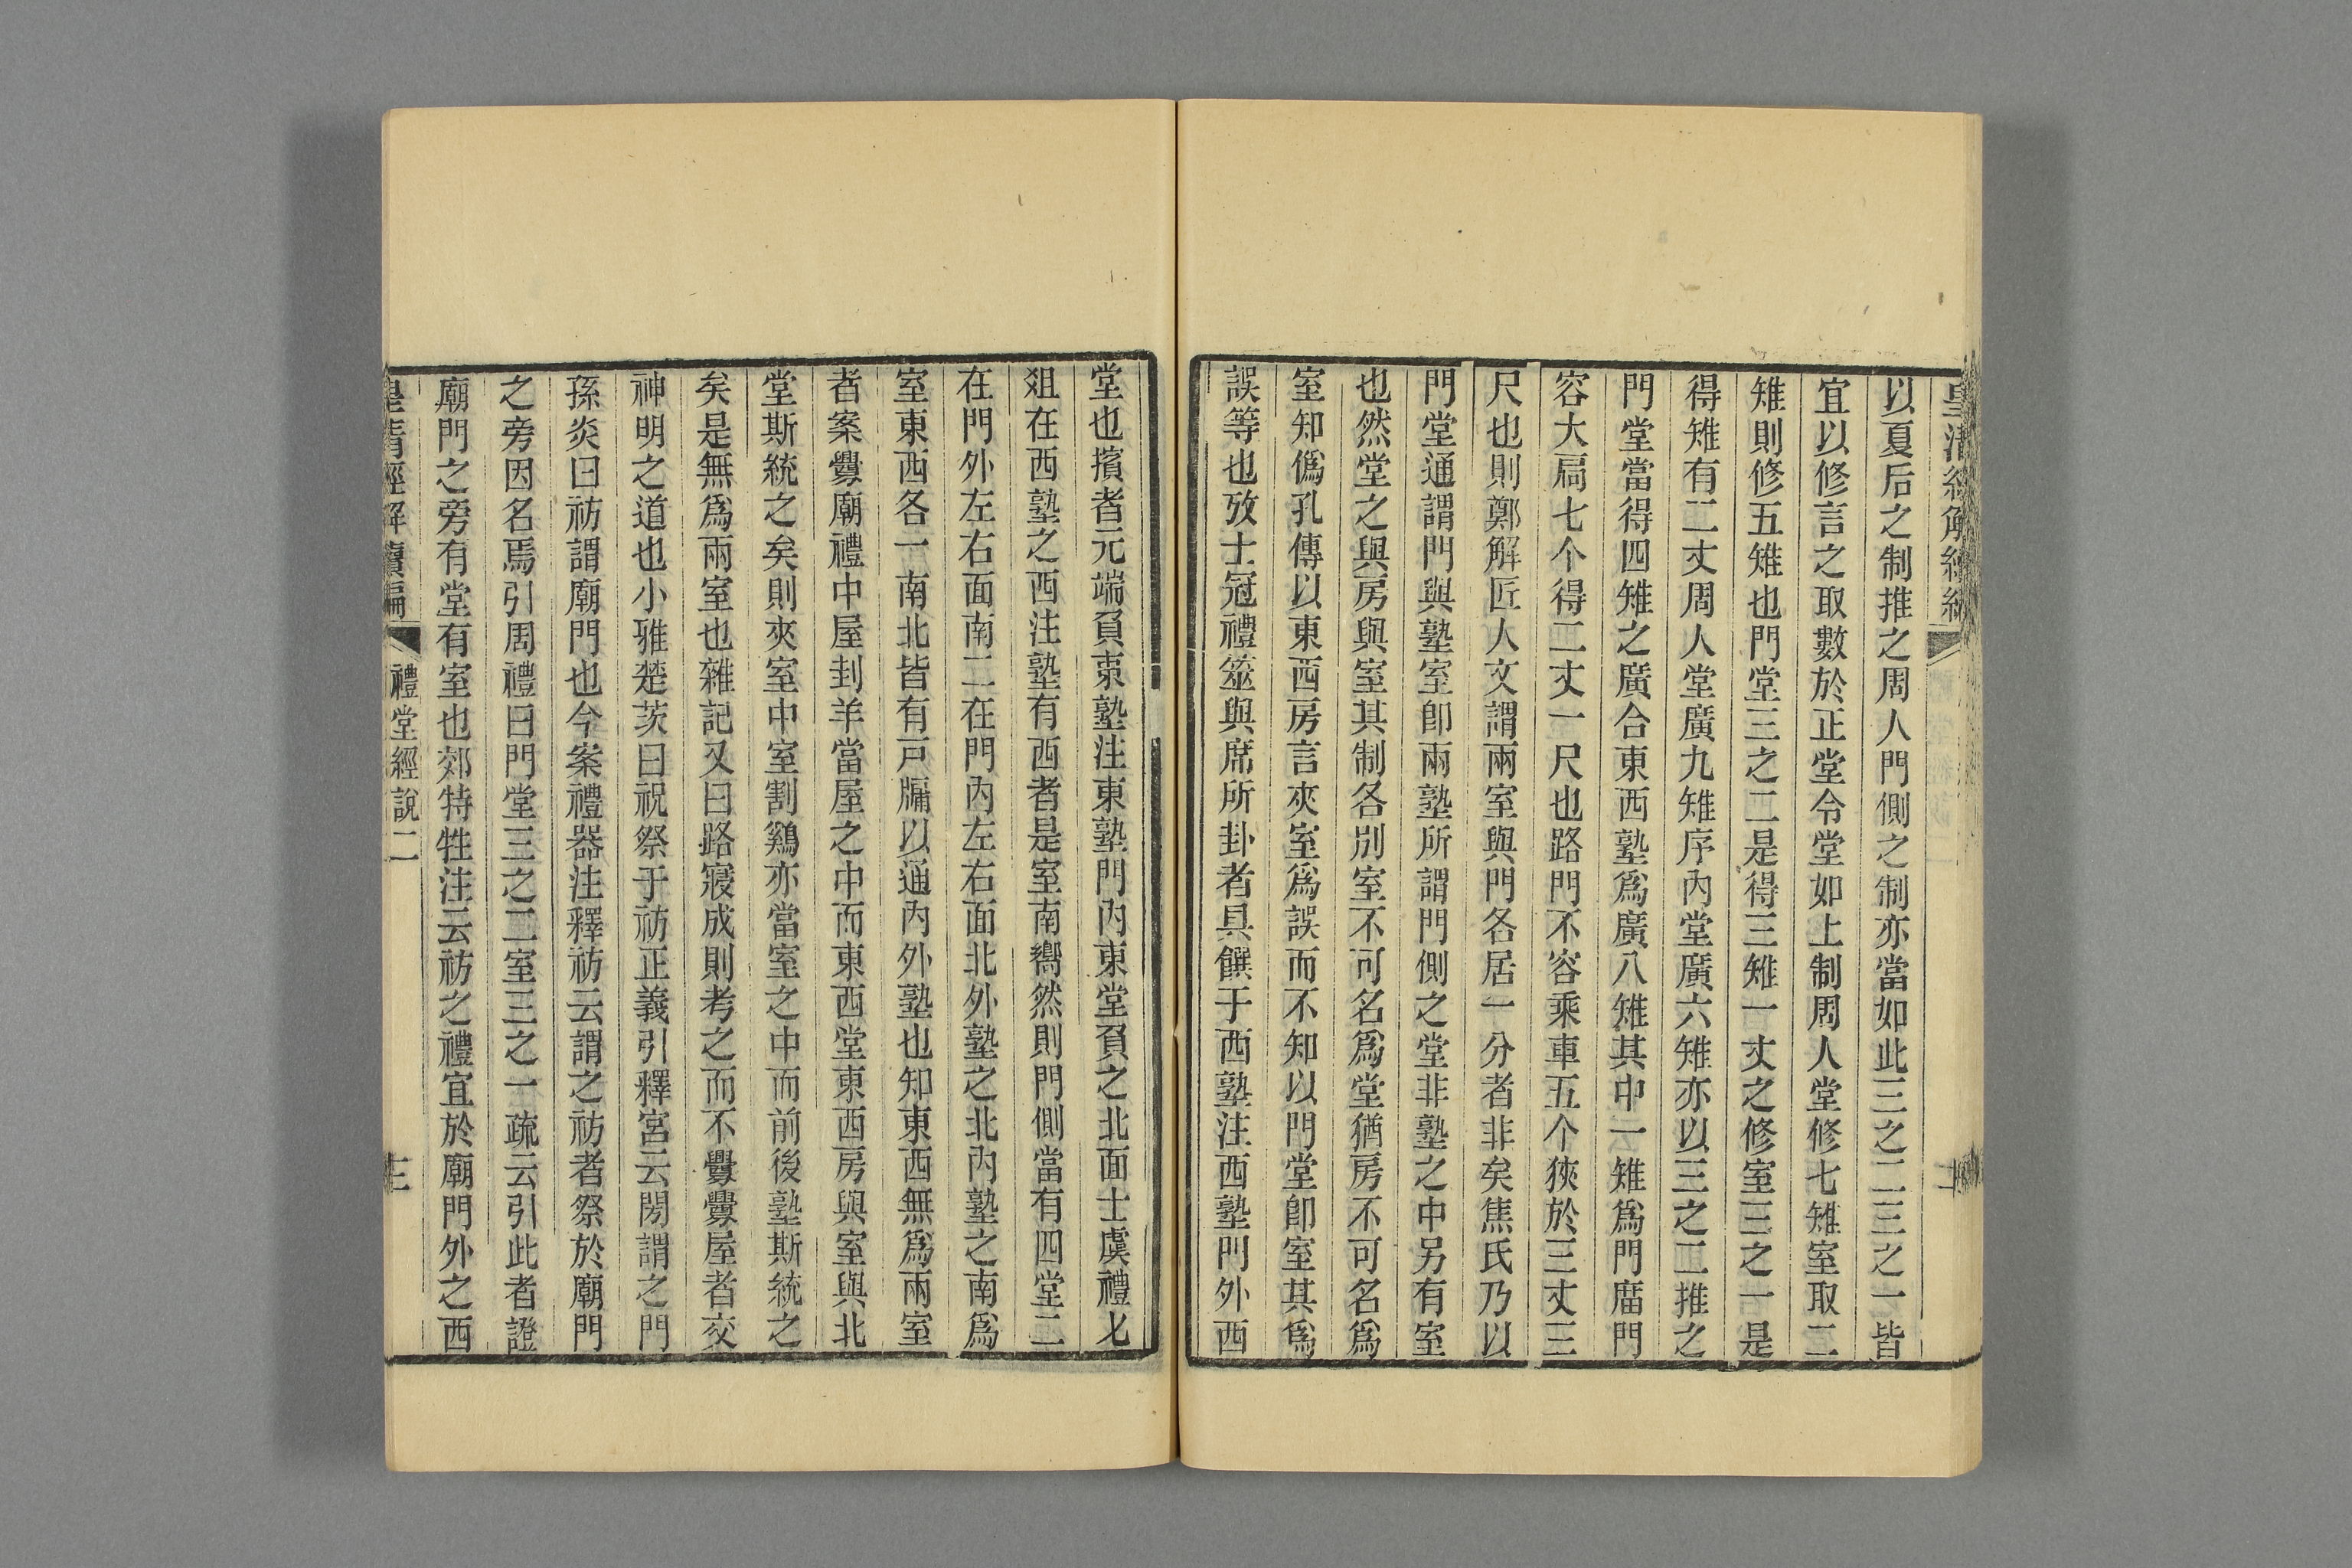 以夏后之制推之周人門側之制亦當如此三之二三之一皆
宜以修言之取數於正堂令堂如上制周人堂修七雉室取二
雉則修五雉也門堂三之二是得三雉一丈之修室三之一是
得雉有二丈周人堂廣九雉序內堂廣六雉亦以三之二推之
門堂當得四雉之廣合東西塾爲廣八雉其中一雉爲門廇門
容大扃七个得二丈一尺也路門不容乘車五个狹於三丈三
尺也則鄭解匠人文謂兩室與門各居一分者非矣焦氏乃以
門堂通謂門與塾室卽兩塾所謂門側之堂非塾之中另有室
也然堂之與房與室其制各別室不可名爲堂猶房不可名爲
室知僞孔傳以東西房言夾室爲誤而不知以門堂卽室其爲
誤等也攷士冠禮筮與席所卦者具饌于西塾注西塾門外西
堂也擯者元端負東塾注東塾門內東堂負之北面士虞禮匕
俎在西塾之西注塾有西者是室南嚮然則門側當有四堂二
在門外左右面南二在門內左右面北外塾之北內塾之南爲
室東西各一南北皆有戸牖以通內外塾也知東西無爲兩室
者案釁廟禮中屋刲羊當屋之中而東西堂東西房與室與北
堂斯統之矣則夾室中室割鷄亦當室之中而前後塾斯統之
矣是無爲兩室也雜記又曰路寢成則考之而不釁釁屋者交
神明之道也小雅楚茨曰祝祭于祊正義引釋宮云閍謂之門
孫炎曰祊謂廟門也今案禮器注釋祊云謂之祊者祭於廟門
之旁因名焉引周禮曰門堂三之二室三之一疏云引此者證
廟門之旁有堂有室也郊特牲注云祊之禮宜於廟門外之西
皇清經解續編 禮堂經說二